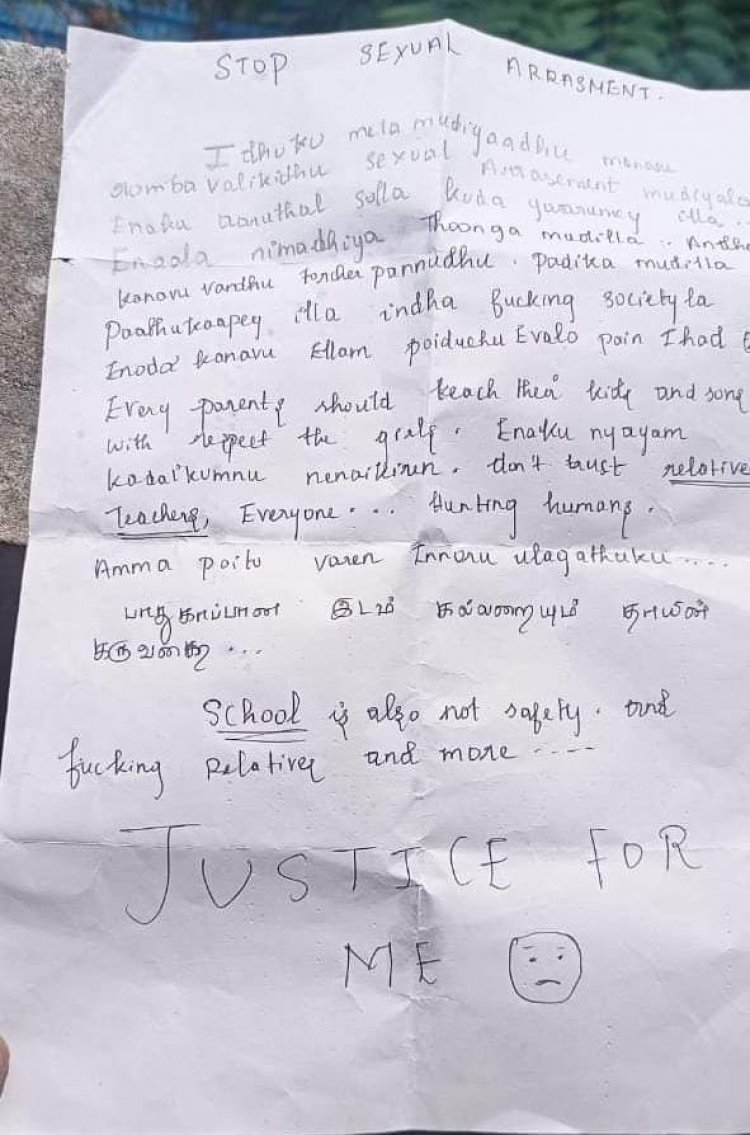 STOP SEXUAL ARRASMENT.
Idhuku mela mudiyaadhu manasu
romba valikidhu sexual Arrasement mudiyala
Enaku aaruthal solla kuda yaarumey illa..
Ennala nimadhiya Thoonga mudilla.. Andha
kanavu vandhu torcher pannudhu. padika mudilla
Paadhukaapey illa indha fucking society la
Enoda kanavu Ellam poiduchu Evalo pain I had
Every parents should teach their kids and sons
with respect the girls. Enaku nyayam
kadaikumnu nenaikiren. don't trust relative
Teachers, Everyone.... Hunting humans.
Amma poitu varen Innoru ulagathuku....
பாதுகாப்பான இடம் கல்லறையும் தாயின்
கருவறை...
School is also not safety. and
fucking Relatives and more ----
JUSTICE FOR
ME